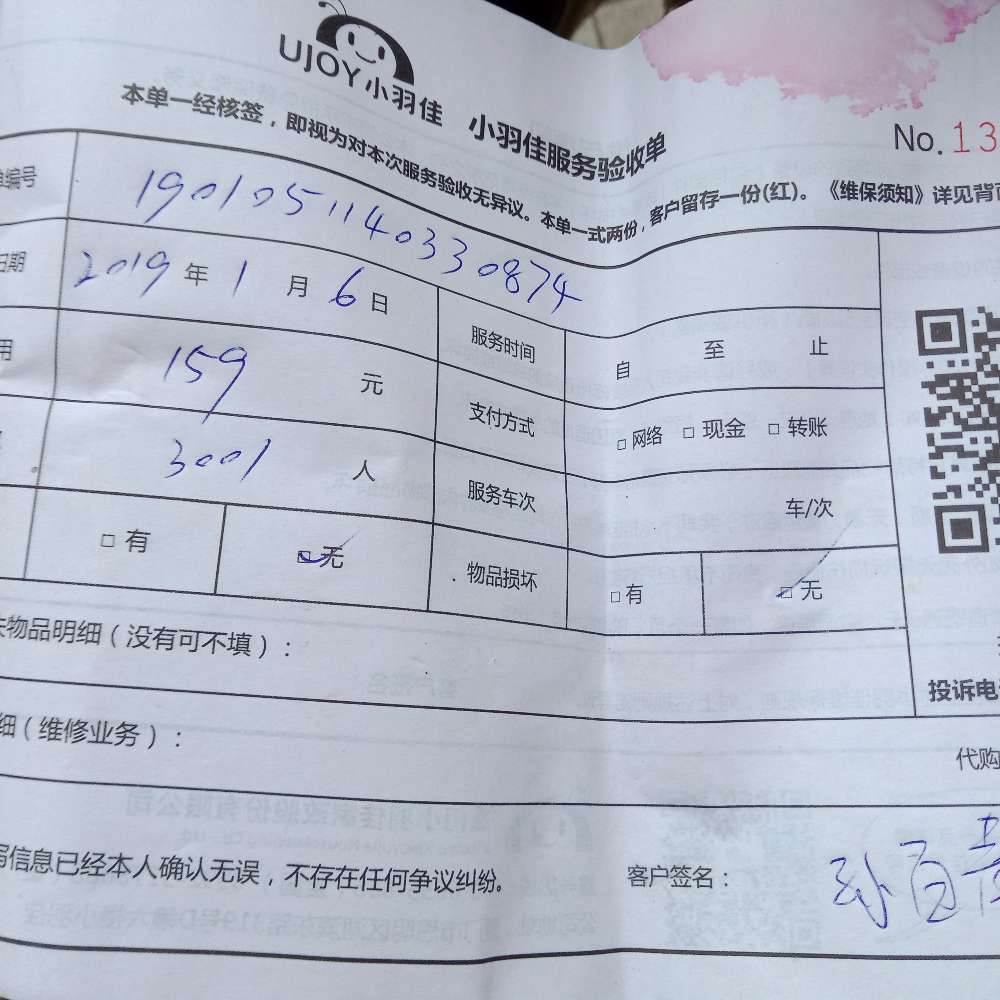 UJOY小羽佳
小羽佳服务验收单
No. 13
本单一经核签，即视为对本次服务验收无异议。本单一式两份，客户留存一份(红)。《维保须知》详见背
编号 190105114033087​4
日期 2019 年 1 月 6 日 服务时间 自 至 止
用 159 元 支付方式 □ 网络 □ 现金 □ 转账
3001 人 服务车次 车/次
□ 有 □ 无 物品损坏 □ 有 □ 无
物品明细（没有可不填）：
投诉电
细（维修业务）：
代购
写信息已经本人确认无误，不存在任何争议纠纷。 客户签名：